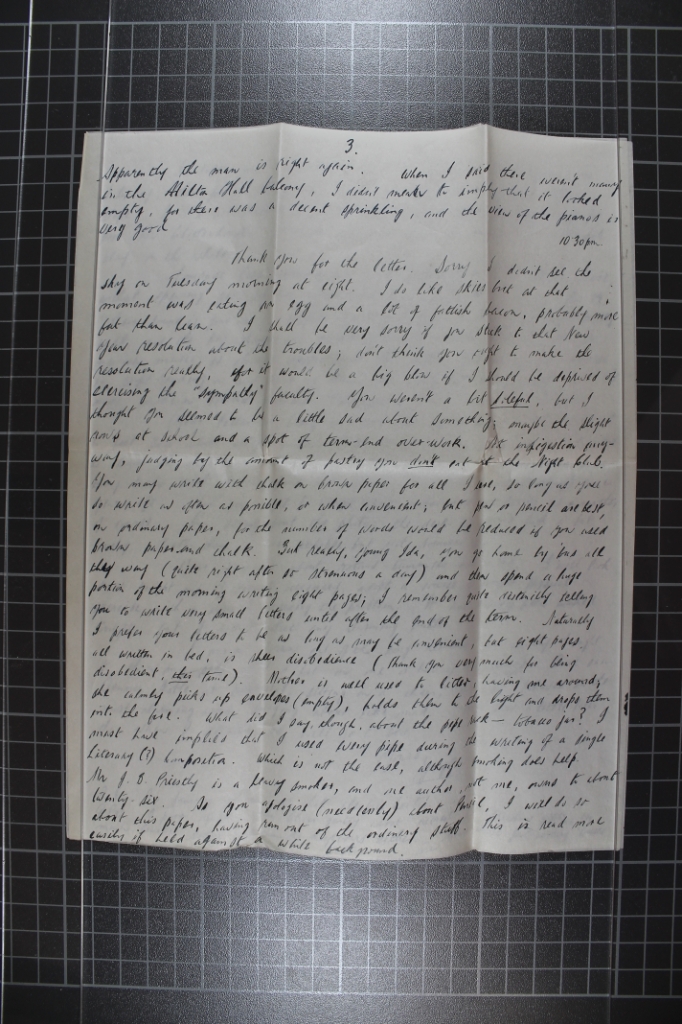 3.
Apparently the man is right again. When I said there weren't many
in the Milton Hall balcony, I didn't mean to imply that it looked
empty, for there was a decent sprinkling, and the view of the pianos is
very good
10 30pm.
Thank you for the letter. Sorry I didn't see the
sky on Tuesday morning at eight. I do like skies but at that
moment was eating an egg and a lot of fattish bacon, probably more
fat than lean. I shall be very sorry if you stick to that New
Year resolution about the troubles; don't think you ought to make the
resolution really, it would be a big blow if I should be deprived of
exercising the "sympathy" faculty. You weren't a bit but I
thought you seemed to be a little sad about something; maybe the slight
at school and a spot of term-end over-work. Not indigestion any-
way, judging by the amount of pastry you don't eat at the Night Club.
You may write with chalk on brown paper for all I care, so long as you
so write as often as possible, or when convenient; but pen or pencil are best,
on ordinary paper, for the number of words would be reduced if you used
brown paper and chalk. But really, young Ida, you go home by bus all
the way (quite right after so strenuous a day) and then spend a huge
portion of the morning writing eight pages; I remember quite distinctly telling
you to write very small letters until after the end of the term. Naturally
I prefer your letters to be as long as may be convenient, but eight pages,
all written in bed, is sheer disobedience (thank you very much for being
disobedient, this time). Mother is well used to litter, having me around;
she calmly picks up envelopes (empty), holds them to the light and drops them
into the fire. What did I say, though, about the pipe rack — tobacco jar? I
must have implied that I used every pipe during the writing of a single
Literary (?) Composition. Which is not the case, although smoking does help.
Mr J. B. Priestly is a heavy smoker, and one author, not me, owns to about
twenty-six. As you apologise (needlessly) about I will do so
about this paper, having run out of the ordinary stuff. This is read more
easily if held against a white background.